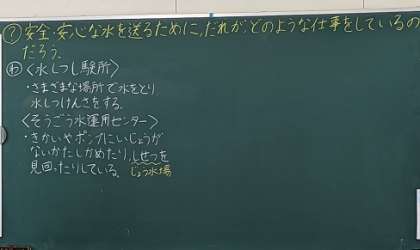 ？安全・安心な水を送るために、だれが、どのような仕事をしているの
だろう。
わ〈水しつし験所〉
・さまざまな場所で水をとり、
水しつけんさをする。
〈そうごう水運用センター〉
・きかいやポンプにいじょうが
ないかたしかめたり、しせつを
見回ったりしている。 じょう水場